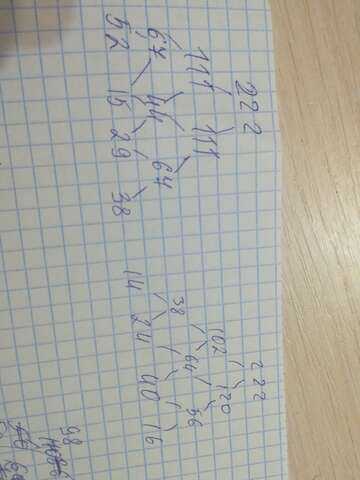 222
111 111
67 44 67
52 15 29 38
222
102 120
38 64 56
14 24 40 16